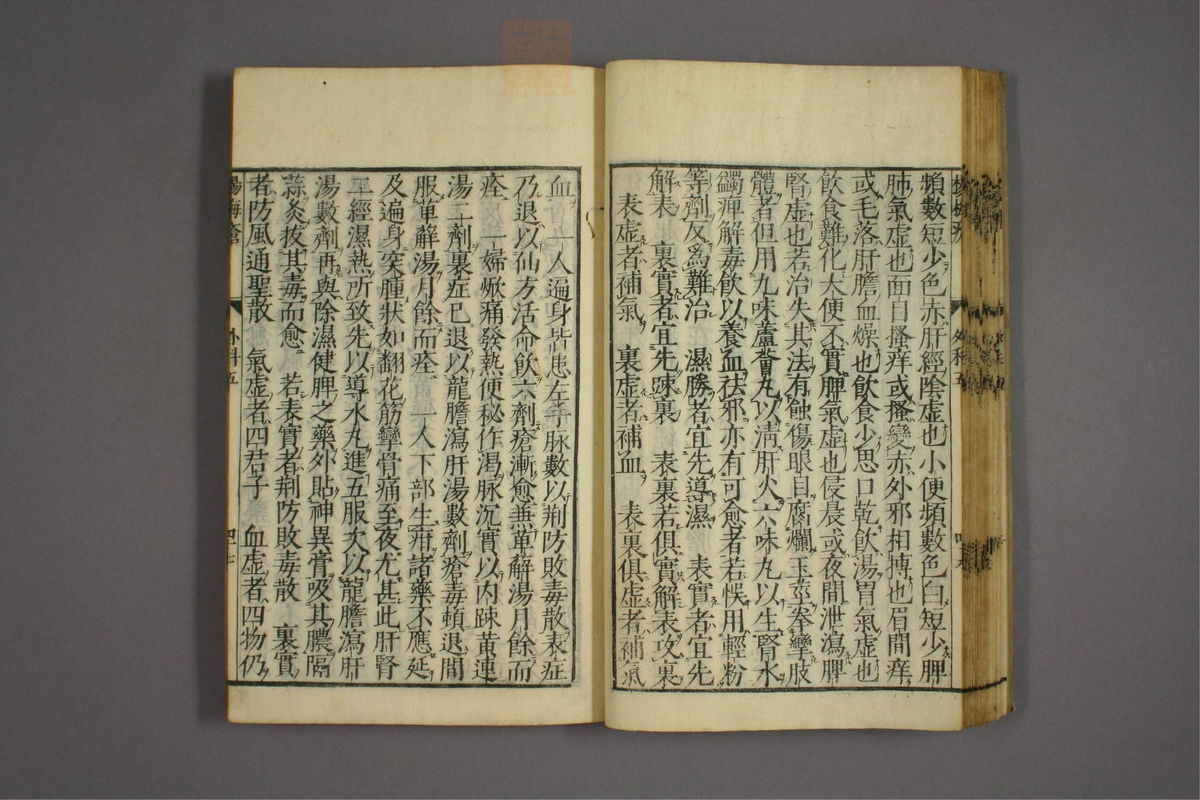 頻數短少色赤肝經陰虛也小便頻數色白短少脾
肺氣虛也面目搔痒或搔變赤外邪相搏也眉間痒
或毛落肝膽血燥也飲食少思口乾飲湯胃氣虛也
飲食難化大便不實脾氣虛也侵晨或夜間泄瀉脾
腎虛也若治失其法有蝕傷眼目腐爛玉莖拳攣肢
體者但用九味蘆薈丸以清肝火六味丸以生腎水
蠲痹解毒飲以養血祛邪亦有可愈者若悞用輕粉
等劑反爲難治 濕勝者宜先導濕 表實者宜先
解表 裏實者宜先踈裏 表裏若俱實解表攻裏
表虛者補氣 裏虛者補血 表裏俱虛者補氣
血 一人遍身皆患左手脉數以荆防敗毒散表症
乃退以仙方活命飲六劑瘡漸愈兼萆解湯月餘而
痊 一婦焮痛發熱便秘作渴脉沉實以內踈黄連
湯二劑裏症已退以龍膽瀉肝湯數劑瘡毒頓退間
服萆薢湯月餘而痊 一人下部生疳諸藥不應延
及遍身突腫狀如翻花筋攣骨痛至夜尤甚此肝腎
二經濕熱所致先以導水丸進五服次以龍膽瀉肝
湯數劑再與除濕健脾之藥外貼神異膏吸其膿隔
蒜灸拔其毒而愈 若表實者荆防敗毒散 裏實
者防風通聖散 氣虛者四君子 血虛者四物仍
楊梅瘡
外科五
外科五